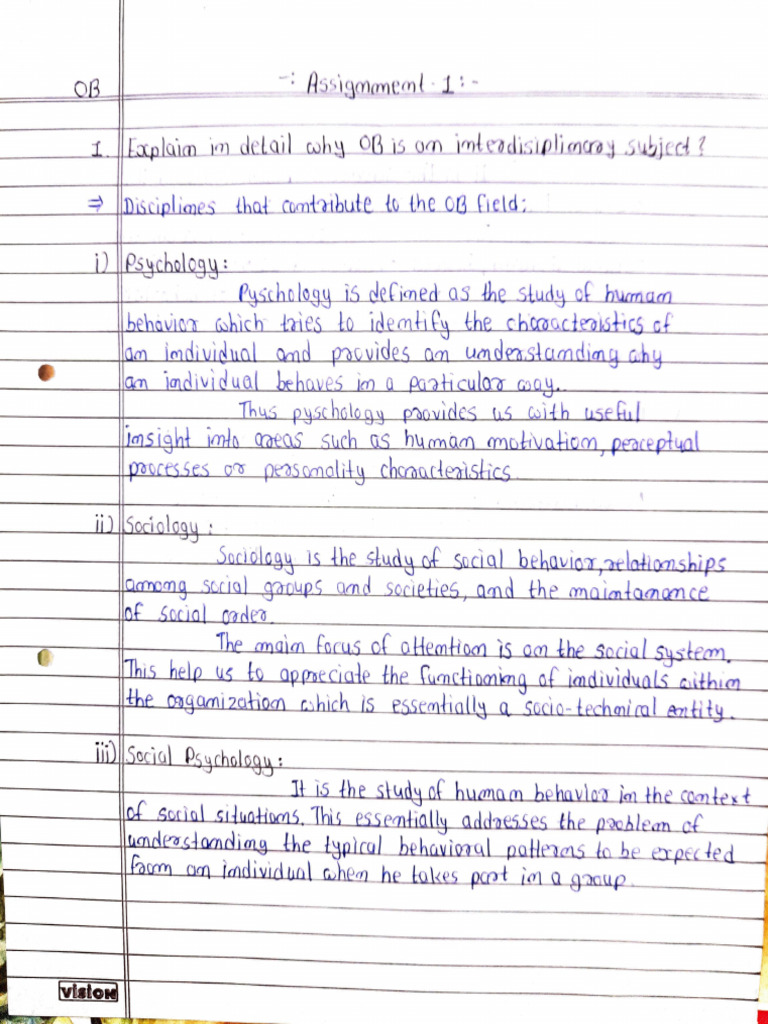 OB
-: Assignment-1:-
1. Explain in detail why OB is an interdisiplinary subject?
⇒ Disciplines that contribute to the OB field:
i) Psychology:
Pyschology is defined as the study of human
behavior which tries to identify the characteristics of
an individual and provides an understanding why
an individual behaves in a particular way.
Thus pyschology provides us with useful
insight into areas such as human motivation, perceptual
processes or personality characteristics
ii) Sociology:
Sociology is the study of social behavior, relationships
among social groups and societies, and the maintanance
of social order.
The main focus of attention is on the social system.
This help us to appreciate the functioning of individuals within
the organization which is essentially a socio-technical entity.
iii) Social Psychology:
It is the study of human behavior in the context
of social situations. This essentially addresses the problem of
understanding the typical behavioral patterns to be expected
from an individual when he takes part in a group.
VISION